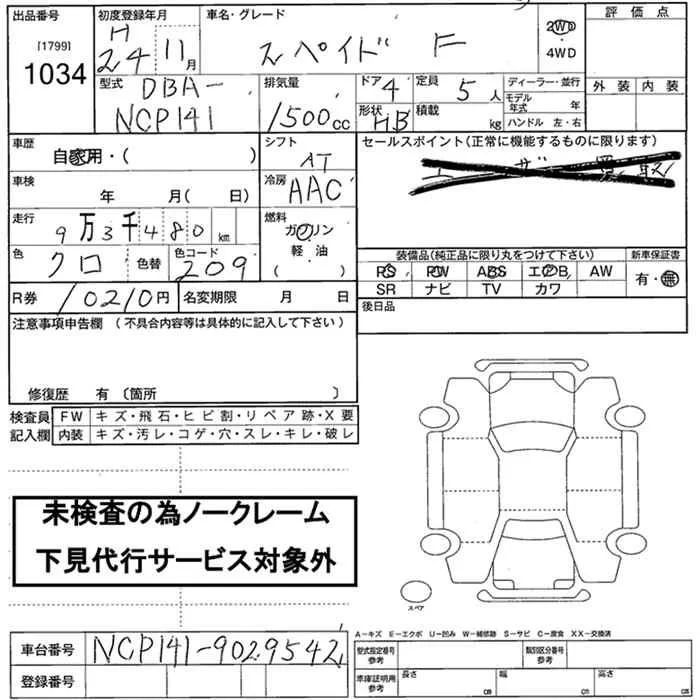 出品番号 [1799] 1034
初度登録年月 H 24 11月
車名・グレード スペイド F
2WD ・ 4WD
評価点
外装 内装
型式 DBA- NCP141
排気量 1500cc
ドア 4
形状 HB
定員 5人
積載 kg
ディーラー・並行
モデル年式 年
ハンドル 左・右
車歴 自家用・( )
シフト AT
車検 年 月( 日)
冷房 AAC
走行 9万3千480km
燃料 ガソリン 軽・油 ( )
色 クロ 色替 色コード 209
R券 10210円 名変期限 月 日
セールスポイント(正常に機能するものに限ります)
装備品(純正品に限り丸をつけて下さい) 新車保証書
PS PW ABS エアB AW 有・無
SR ナビ TV カワ
後日品
注意事項申告欄 (不具合内容等は具体的に記入して下さい)
修復歴 有 〔箇所 〕
検査員記入欄
FW キズ・飛石・ヒビ割・リペア跡・X要
内装 キズ・汚レ・コゲ・穴・スレ・キレ・破レ
未検査の為ノークレーム
下見代行サービス対象外
スペア
A-キズ E-エクボ U-凹み W-補修跡 S-サビ C-腐食 XX-交換済
車台番号 NCP141-9029542
登録番号
型式指定番号 参考 類別区分番号
車庫証明用 参考 長さ cm 幅 cm 高さ cm